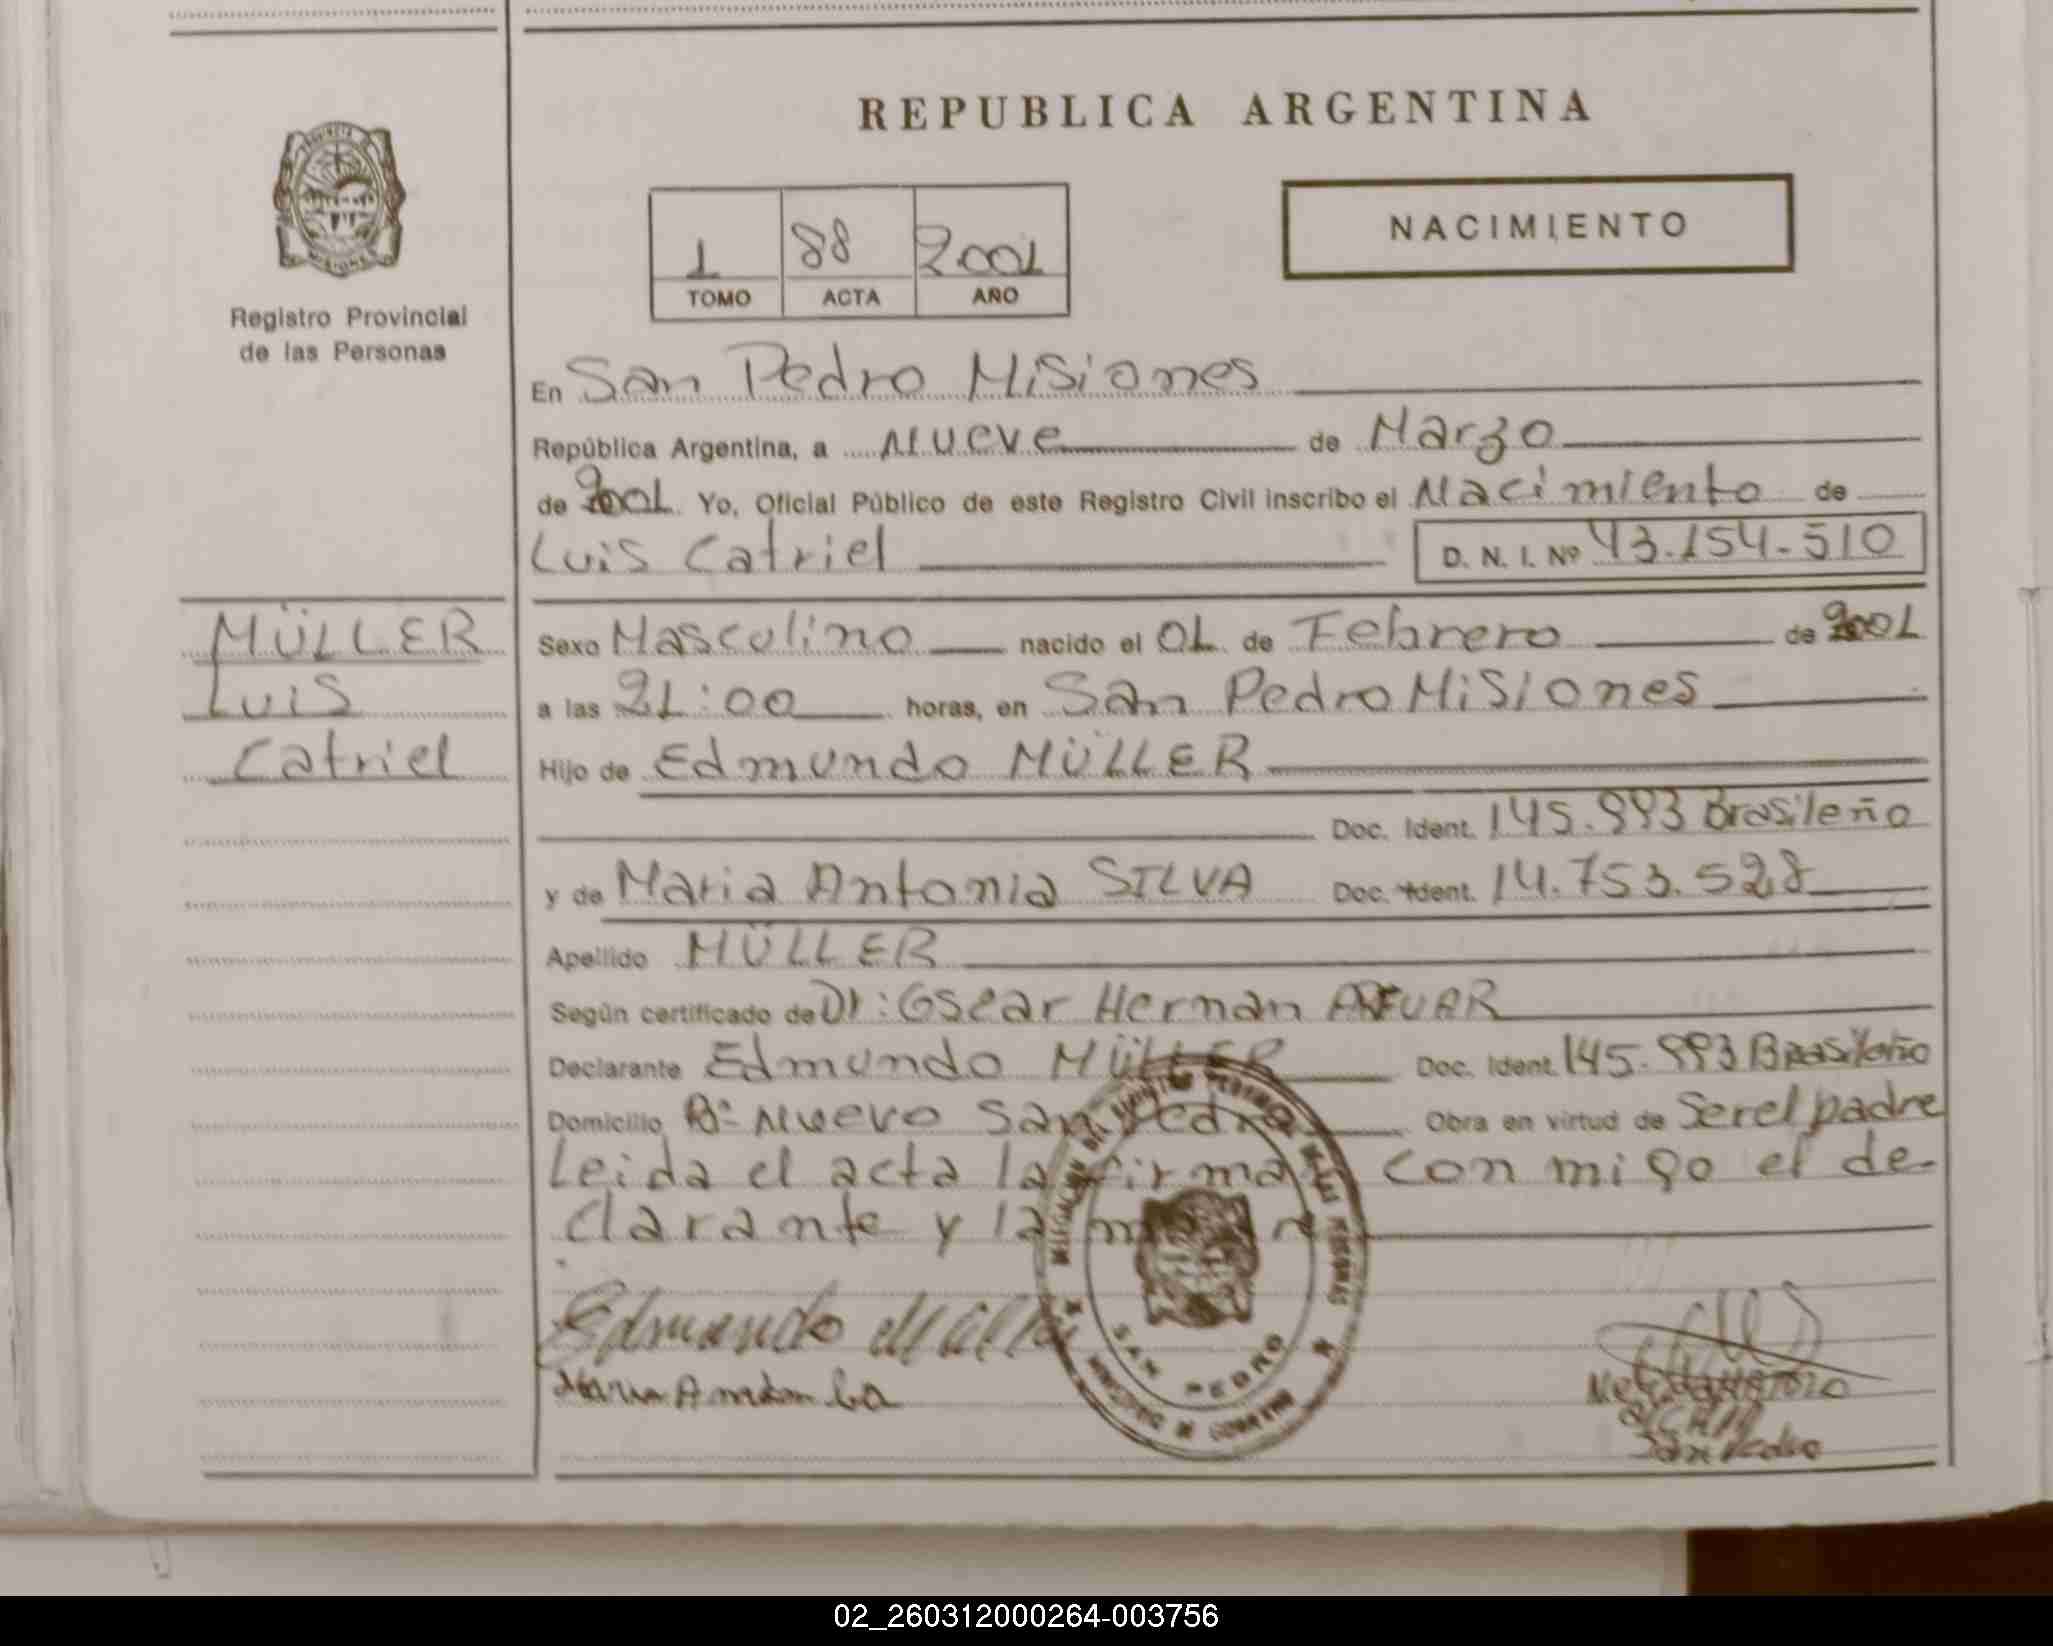 REPUBLICA ARGENTINA
NACIMIENTO
1 88 2001
TOMO ACTA AÑO
PROVINCIA
MISIONES
Registro Provincial
de las Personas
En San Pedro Misiones
República Argentina, a Nueve de Marzo
de 2001 Yo, Oficial Público de este Registro Civil inscribo el Nacimiento de
Luis Catriel D. N. I. Nº 43.154.510
MÜLLER
Luis
Catriel
Sexo Masculino nacido el 01 de Febrero de 2001
a las 21:00 horas, en San Pedro Misiones
Hijo de Edmundo MÜLLER
Doc. Ident. 145.993 Brasileño
y de Maria Antonia SILVA Doc. Ident. 14.753.528
Apellido MÜLLER
Según certificado de Dr: Oscar Hernan
Declarante Edmundo MÜLLER Doc. Ident. 145.993 Brasileño
Domicilio Bº Nuevo San Pedro Obra en virtud de Ser el padre
Leida el acta la firma con migo el de-
clarante y la
Edmundo
Maria
SAN PEDRO
San Pedro
02_260312000264-003756